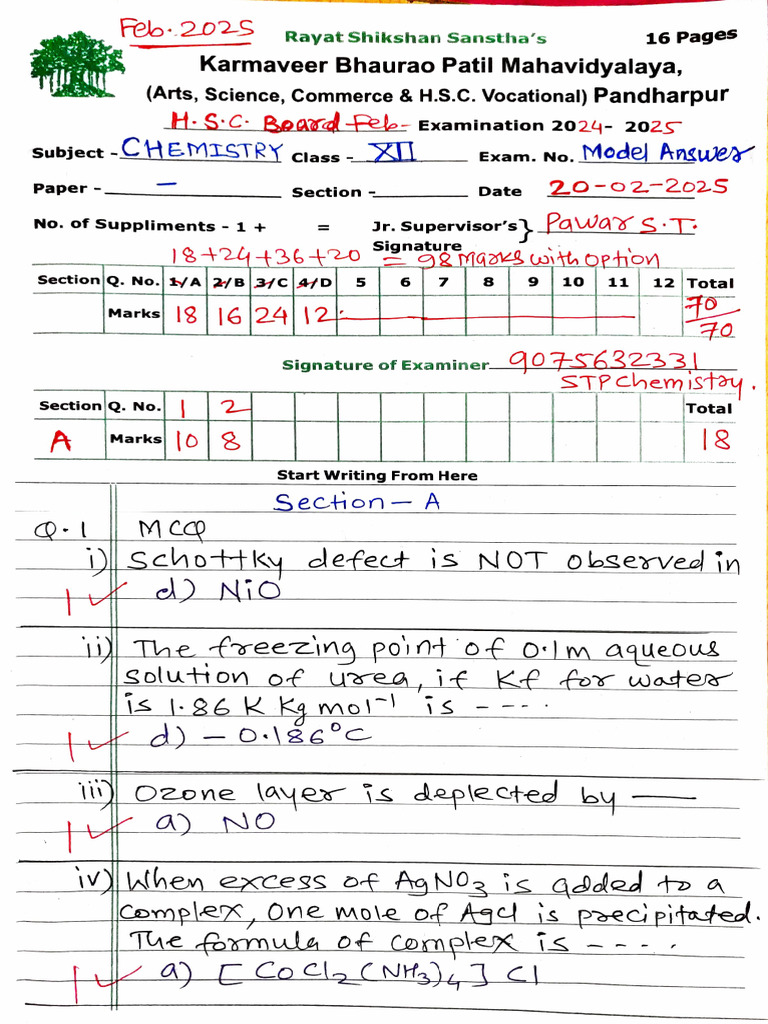 Feb. 2025
Rayat Shikshan Sanstha's 16 Pages
Karmaveer Bhaurao Patil Mahavidyalaya,
(Arts, Science, Commerce & H.S.C. Vocational) Pandharpur
H.S.C. Board Feb- Examination 2024- 2025
Subject - CHEMISTRY Class - XII Exam. No. Model Answer
Paper - - Section - Date 20-02-2025
No. of Suppliments - 1 + = Jr. Supervisor's } Pawar S.T.
Signature
18+24+36+20 = 98 Marks with option
Section Q. No. 1/A 2/B 3/C 4/D 5 6 7 8 9 10 11 12 Total
Marks 18 16 24 12 70/70
Signature of Examiner 9075632331
STP Chemistry.
Section Q. No. 1 2 Total
A Marks 10 8 18
Start Writing From Here
Section - A
Q.1 MCQ
i) Schottky defect is NOT observed in
1 ✓ d) NiO
ii) The freezing point of 0.1m aqueous
solution of urea, if Kf for water
is 1.86 K Kg mol⁻¹ is ----.
1 ✓ d) - 0.186°C
iii) Ozone layer is deplected by —
1 ✓ a) NO
iv) When excess of AgNO₃ is added to a
complex, One mole of AgCl is precipitated.
The formula of complex is ----.
1 ✓ a) [CoCl₂(NH₃)₄]Cl